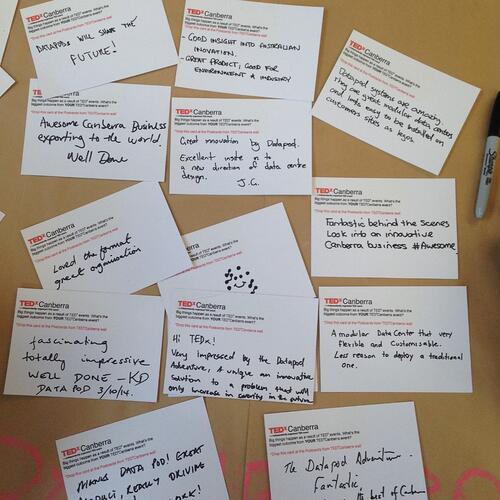 TEDxCanberra
Big things happen as a result of TED events. What's the
*Drop this card at the Postcards from TEDCanberra wall
DATAPODS WILL THE
FUTURE!
TEDxCanberra
Big things happen as a result of TED events. What's the
biggest outcome from YOUR TEDCanberra event?
*Drop this card at the Postcards from TEDCanberra wall
- GOOD INSIGHT INTO AUSTRALIAN
INNOVATION.
- GREAT PRODUCT; GOOD FOR
ENVIRONMENT & INDUSTRY
TEDxCanberra
Datapod systems are amazing.
They are great modular data centers
and look easy to be installed on
customers sites as legos.
TEDxCanberra
Big things happen as a result of TED events. What's the
biggest outcome from YOUR TEDCanberra event?
*Drop this card at the Postcards from TEDCanberra wall
Awesome Canberra Business
exporting to the world.
Well Done
TEDxCanberra
Big things happen as a result of TED events. What's the
biggest outcome from YOUR TEDCanberra event?
*Drop this card at the Postcards from TEDCanberra wall
Great inovation by Datapod.
Excellent insite in to
a new direction of data centre
design.
J.G.
TEDxCanberra
Loved the format
great organisation
TEDxCanberra
Big things happen as a result of TED events. What's the
biggest outcome from YOUR TEDCanberra event?
*Drop this card at the Postcards from TEDCanberra wall
Fantastic behind the Scenes
Look into an innovative
Canberra business #Awesome
TEDxCanberra
Big things happen as a result of TED events. What's the
biggest outcome from YOUR TEDCanberra event?
*Drop this card at the Postcards from TEDCanberra wall
fascinating
totally impressive
WELL DONE - KD
DATA POD 3/10/14.
TEDxCanberra
Big things happen as a result of TED events. What's the
biggest outcome from YOUR TEDCanberra event?
*Drop this card at the Postcards from TEDCanberra wall
Hi TEDx!
Very impressed by the Datapod
Adventure, A unique an innovative
solution to a problem that will
only increase in severity in the future
TEDxCanberra
Big things happen as a result of TED events. What's the
biggest outcome from YOUR TEDCanberra event?
*Drop this card at the Postcards from TEDCanberra wall
A modular Data Center that very
Flexible and Customisable.
Less reason to deploy a traditional
one.
TEDxCanberra
Big things happen as a result of TED events. What's the
biggest outcome from YOUR TEDCanberra event?
*Drop this card at the Postcards from TEDCanberra wall
THANKS DATA POD! GREAT
REALLY DRIVING
TEDxCanberra
Big things happen as a result of TED events. What's the
biggest outcome from YOUR TEDCanberra event?
*Drop this card at the Postcards from TEDCanberra wall
The Datapod Adventure -
Fantastic.
best of Canberra
Sharpie